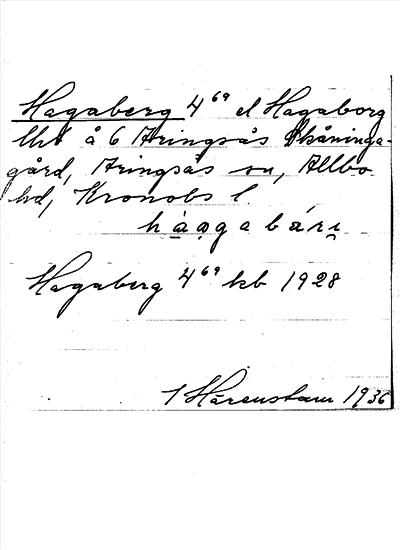 Hagaberg 4⁶⁹ el Hagaborg
lht å 6 Aringsås Skåninga-
gård, Aringsås sn, Allbo
hd, Kronobs l.
hạạga bári
Hagaberg 4⁶⁹ kb 1928
1 Härenstam 1936